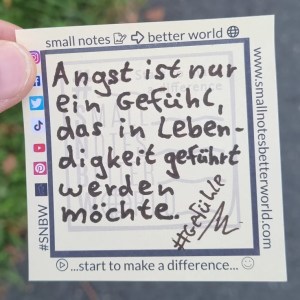 small notes better world
Angst ist nur
ein Gefühl,
das in Leben-
digkeit geführt
werden
möchte.
#Gefühle
#SNBW
www.smallnotesbetterworld.com
...start to make a difference...